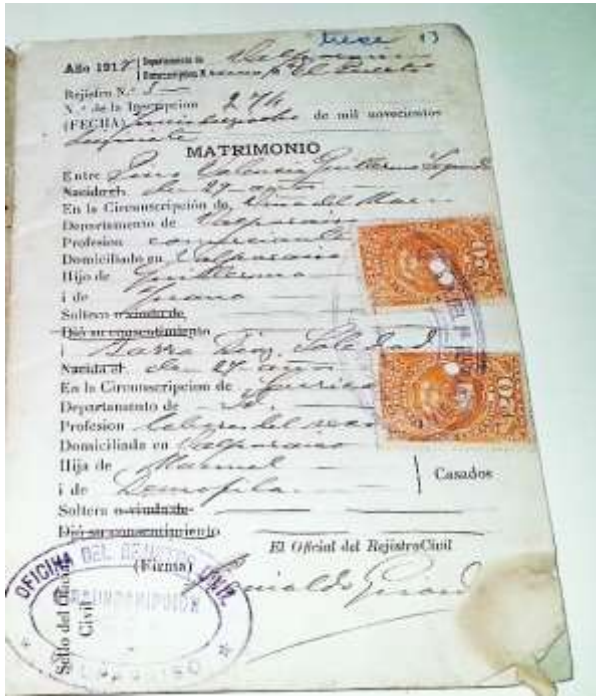 13
Año 1917 Departamento de Valparaiso
Circunscripcion N. El Puerto
Rejistro N.° 5
N.° de la Inscripcion 274
(FECHA) de mil novecientos
MATRIMONIO
Entre Valencia Guillermo Segundo
Nacido el de 29 años
En la Circunscripción de Viña del Mar
Departamento de Valparaiso
Profesion comerciante
Domiciliado en Valparaiso
Hijo de Guillermo
i de Juana
Soltero o viudo de
Dió su consentimiento
i Parra Diaz, Soledad
Nacida el de 24 años
En la Circunscripcion de Curicó
Departamento de
Profesion labores del sexo
Domiciliada en Valparaiso
Hija de Manuel
i de Domofila
Casados
Soltera o viuda de
Dió su consentimiento
El Oficial del RejistroCivil
(Firma)
Sello del Oficial Civil
OFICINA DEL REJISTRO CIVIL
CIRCUNSCRIPCION
VALPARAISO
20
20